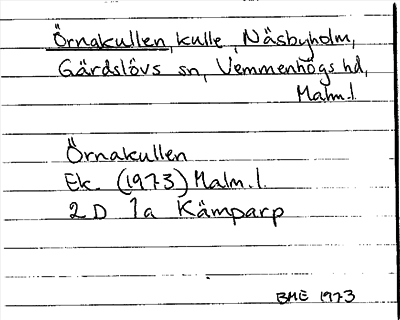 Örnakullen, kulle, Näsbyholm,
Gärdslövs sn, Vemmenhögs hd,
Malm.l.
Örnakullen
Ek. (1973) Malm.l.
2D 1a Kämparp
BHE 1973